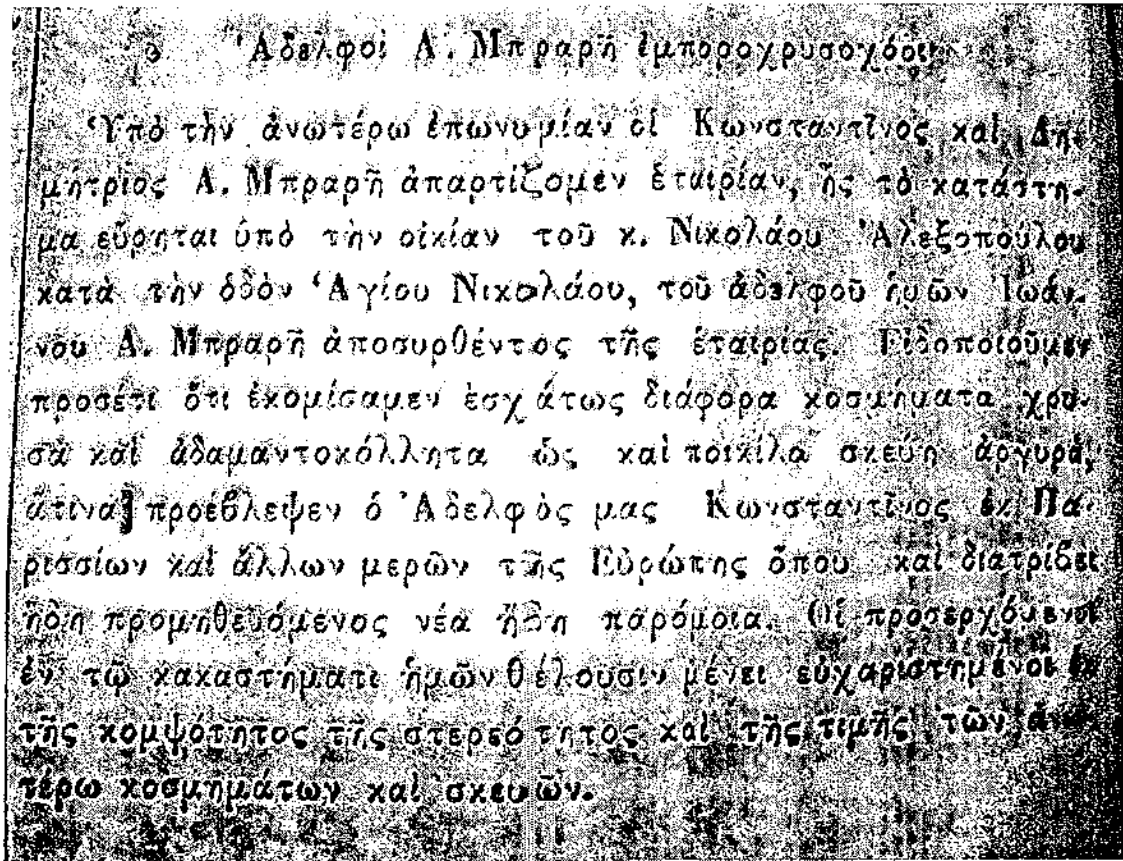 Ἀδελφοὶ Α. Μπραρῆ ἐμποροχρυσοχόοι
Ὑπὸ τὴν ἀνωτέρω ἐπωνυμίαν οἱ Κωνσταντῖνος καὶ Δη-
μήτριος Α. Μπραρῆ ἀπαρτίζομεν ἑταιρίαν, ἧς τὸ κατάστη-
μα εὕρηται ὑπὸ τὴν οἰκίαν τοῦ κ. Νικολάου Ἀλεξοπούλου
κατὰ τὴν ὁδὸν Ἁγίου Νικολάου, τοῦ ἀδελφοῦ ἡμῶν Ἰωάν-
νου Α. Μπραρῆ ἀποσυρθέντος τῆς ἑταιρίας. Εἰδοποιοῦμεν
προσέτι ὅτι ἐκομίσαμεν ἐσχάτως διάφορα κοσμήματα χρυ-
σᾶ καὶ ἀδαμαντοκόλλητα ὡς καὶ ποικίλα σκεύη ἀργυρᾶ,
ἅτινα προέβλεψεν ὁ Ἀδελφὸς μας Κωνσταντῖνος ἐκ Πα-
ρισσίων καὶ ἄλλων μερῶν τῆς Εὐρώπης ὅπου καὶ διατρίβει
ἤδη προμηθευόμενος νέα ἤδη παρόμοια. Οἱ προσερχόμενοι
ἐν τῷ κακαστήματι ἡμῶν θέλουσιν μένει εὐχαριστημένοι ἐκ
τῆς κομψότητος τῆς στερεότητος καὶ τῆς τιμῆς τῶν ἀνω-
τέρω κοσμημάτων καὶ σκευῶν.